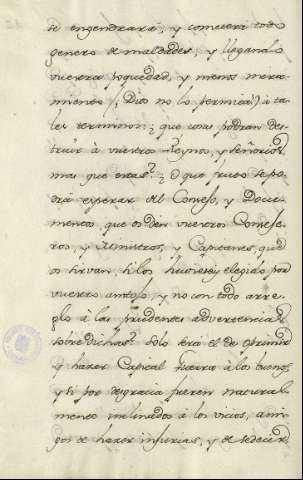 se engendrará, y cometerá todo
genero de maldades, y llegando
vuestra poquedad, y menos mere-
cimiento (Dios no lo permita) à ta-
les terminos; que cosas podran des-
truir à vuestros Reynos, y señorios
mas que estas? ¿O que fruto se po-
drá esperar del Consejo, y Docu-
mentos, que os den vuestros Conseje-
ros, y Ministros, y Capitanes, que
os sirvan, si los hicieseis, y elegido por
vuestro antojo, y no con todo arre-
glo à las prudentes advertencias
sobre dichas? Solo será el de oprimir
y hazer Capital guerra à los buenos,
y si por desgracia fueren natural-
mente inclinados à los vicios, ami-
gos de hazer injurias, y de